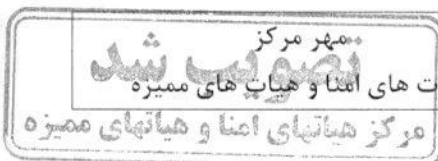 مهر مرکز
تصویب شد
ت های امنا و هیات های ممیزه
مرکز هیاتهای امنا و هیاتهای ممیزه